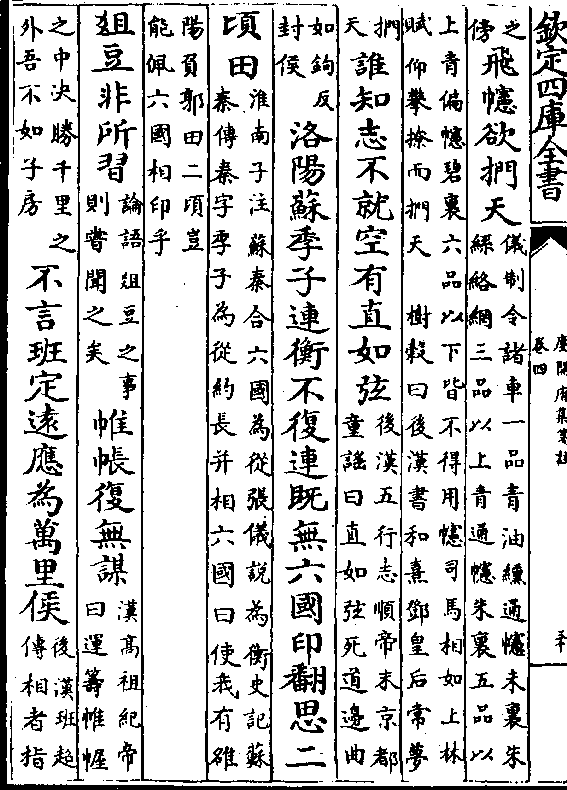 欽定四庫全書
庾開府集箋註
卷四
之
傍
飛幰欲捫天
儀制令諸車一品青油纁通幰朱裏朱
緑絡網三品以上青通幰朱裏五品以
上青偏幰碧裏六品以下皆不得用幰司馬相如上林
賦仰攀橑而捫天　樹榖曰後漢書和熹鄧皇后常夢
捫
天
誰知志不就空有直如弦
後漢五行志順帝末京都
童謡曰直如弦死道邊曲
如鉤反
封侯
洛陽蘇季子連衡不復連既無六國印翻思二
頃田
淮南子注蘇秦合六國為從張儀說為衡史記蘇
秦傳秦字季子為從約長并相六國曰使我有雒
陽負郭田二頃豈
能佩六國相印乎
俎豆非所習
論語俎豆之事
則嘗聞之矣
帷帳復無謀
漢髙祖紀帝
曰運籌帷幄
之中決勝千里之
外吾不如子房
不言班定逺應為萬里侯
後漢班超
傳相者指